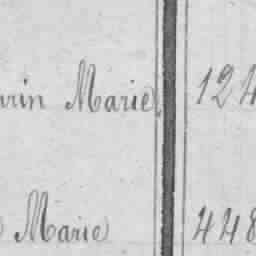 rin Marie 124
Marie 448